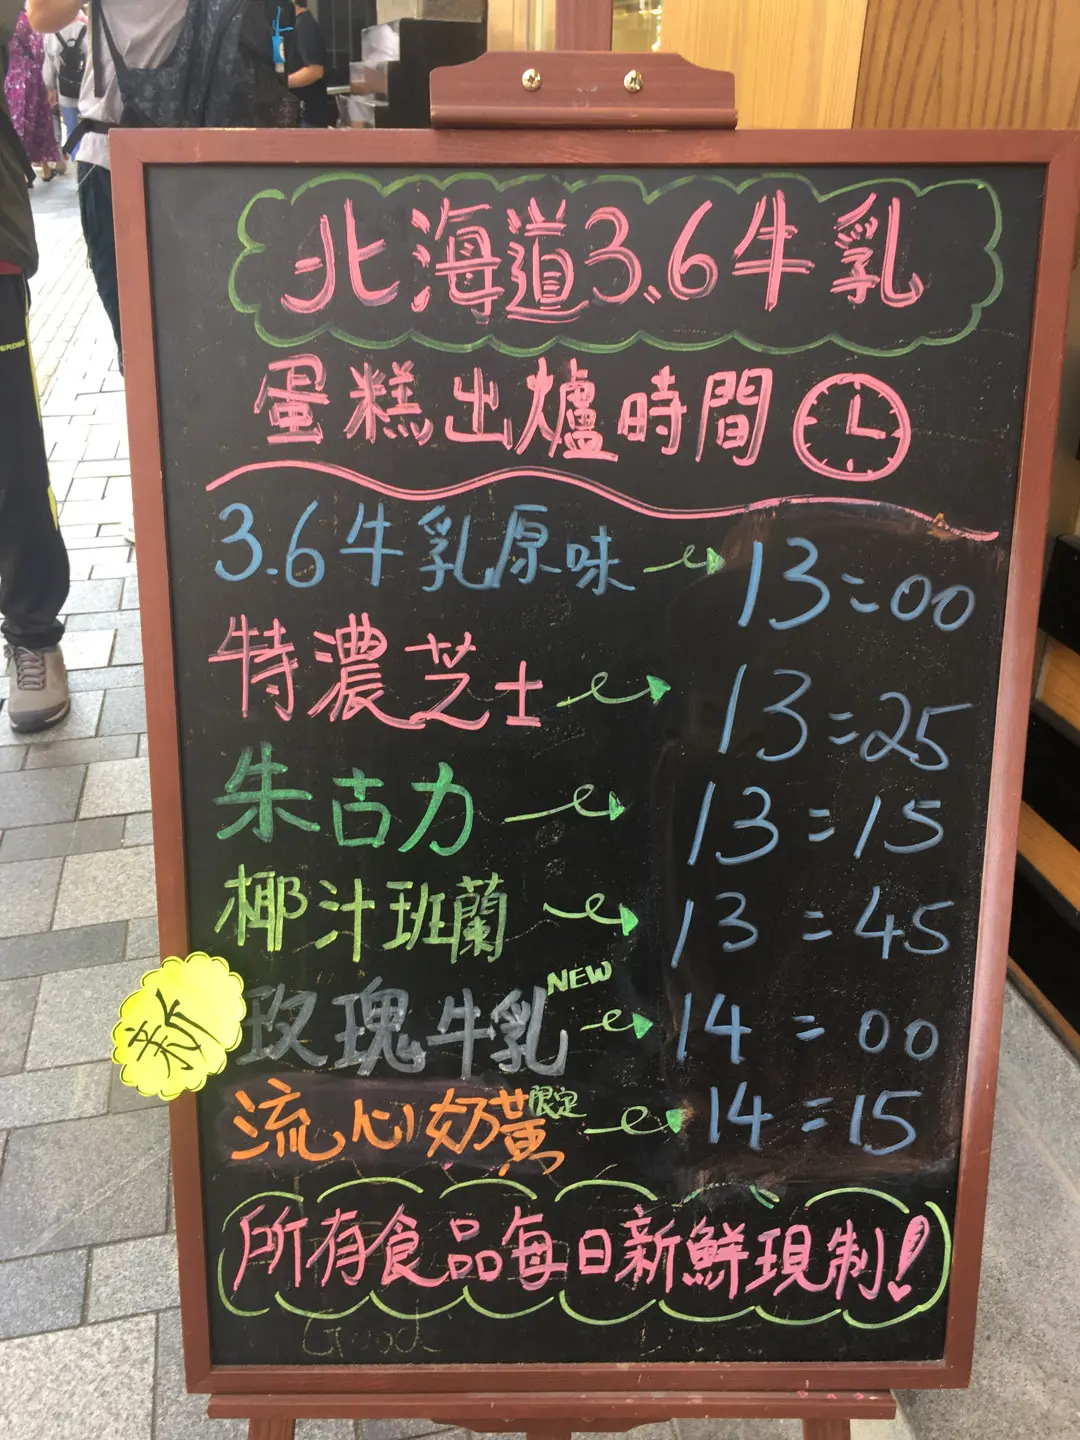 北海道3.6牛乳
蛋糕出爐時間
3.6牛乳原味 13:00
特濃芝士 13:25
朱古力 13:15
椰汁班蘭 13:45
新 玫瑰牛乳 NEW 14:00
流心奶黃 限定 14:15
所有食品每日新鮮現制!
Good